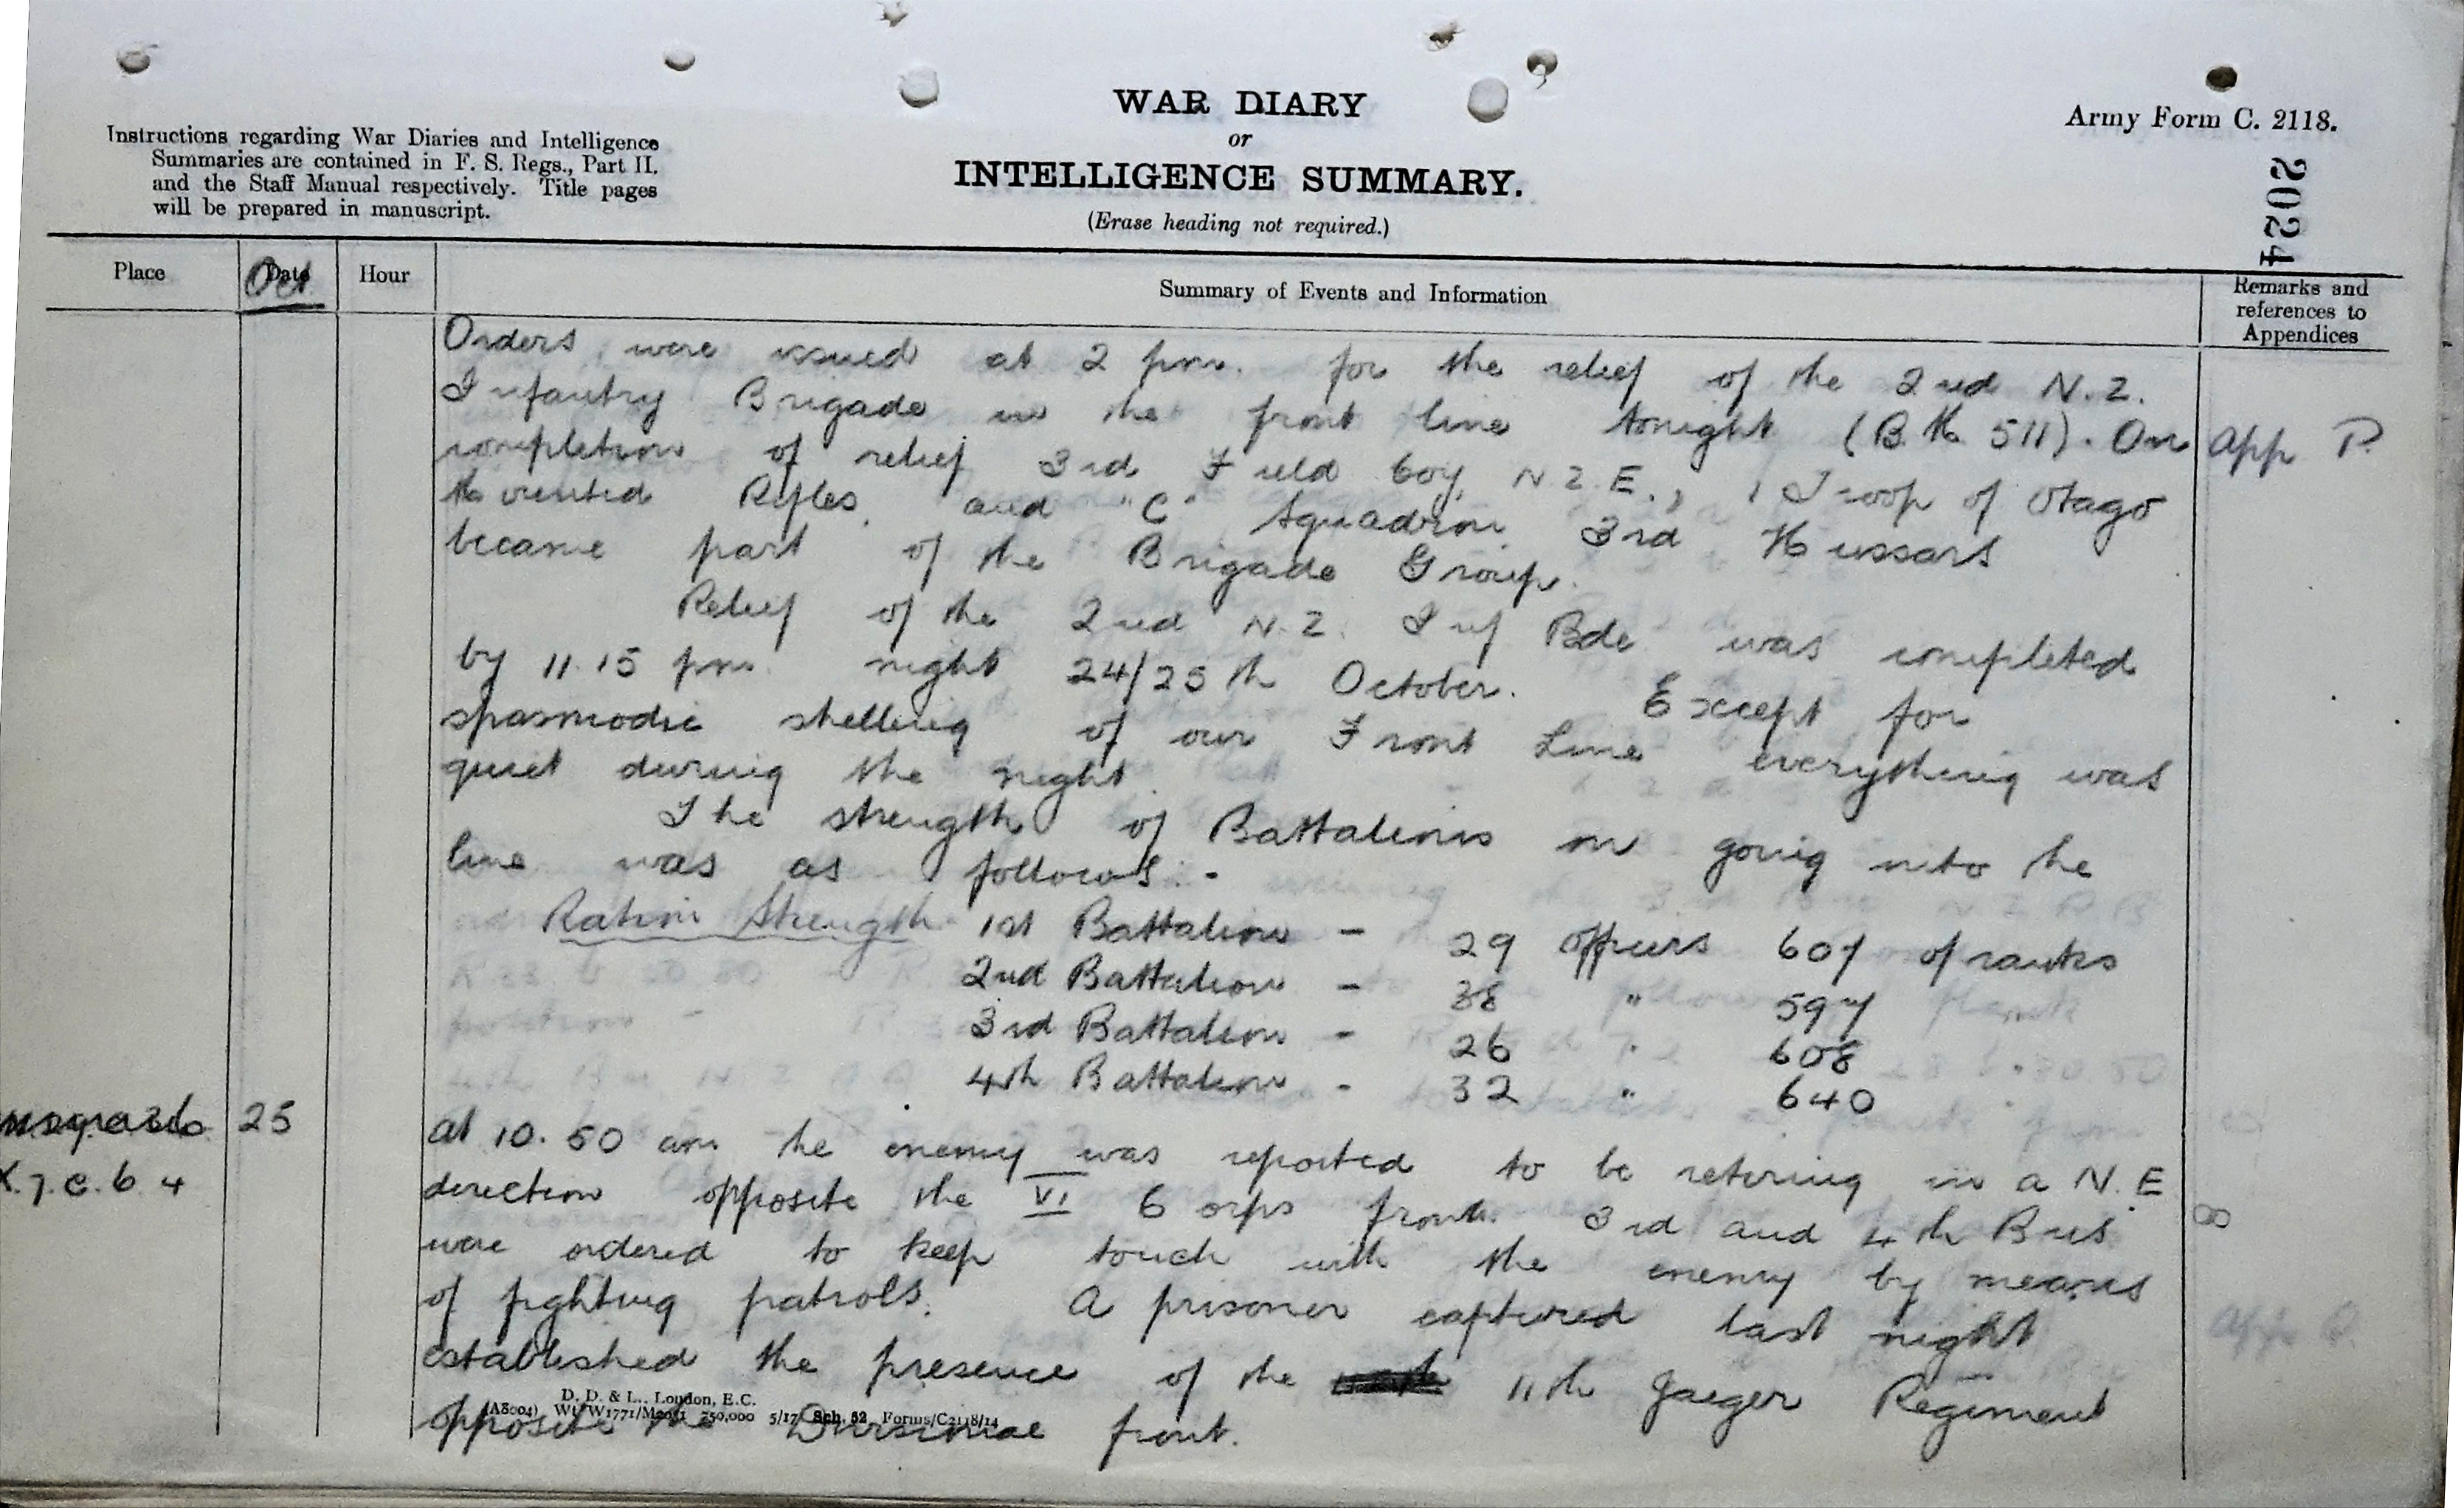 WAR DIARY
or
INTELLIGENCE SUMMARY.
(Erase heading not required.)
Army Form C. 2118.
2024
Instructions regarding War Diaries and Intelligence
Summaries are contained in F. S. Regs., Part II.
and the Staff Manual respectively. Title pages
will be prepared in manuscript.
Place
Date
Oct
Hour
Summary of Events and Information
Remarks and
references to
Appendices
Orders were issued at 2 pm. for the relief of the 2nd N.Z.
Infantry Brigade in the front line tonight (B.M. 511). On
App P.
completion of relief 3rd Field Coy N Z E., 1 Troop of Otago
Mounted Rifles and "C" Squadron 3rd Hussars
became part of the Brigade Group.
Relief of the 2nd N.Z. Inf Bde was completed
by 11.15 pm night 24/25th October. Except for
spasmodic shelling of our Front Line everything was
quiet during the night.
The strength of Battalions on going into the
line was as follows:-
Ration Strength 1st Battalion - 29 officers 607 of ranks
2nd Battalion - 38 " 597
3rd Battalion - 26 " 608 "
4th Battalion - 32 " 640 "
25
At 10.50 am the enemy was reported to be retiring in a N.E
X.7.c.6.4
direction opposite the VI Corps front. 3rd and 4th Bns
were ordered to keep touch with the enemy by means
of fighting patrols. A prisoner captured last night
App Q.
established the presence of the 11th Jaeger Regiment
opposite the Divisional front.
D. D. & L., London, E.C.
(A8004) 750,000 5/17 Sch. 52 Forms/C2118/14